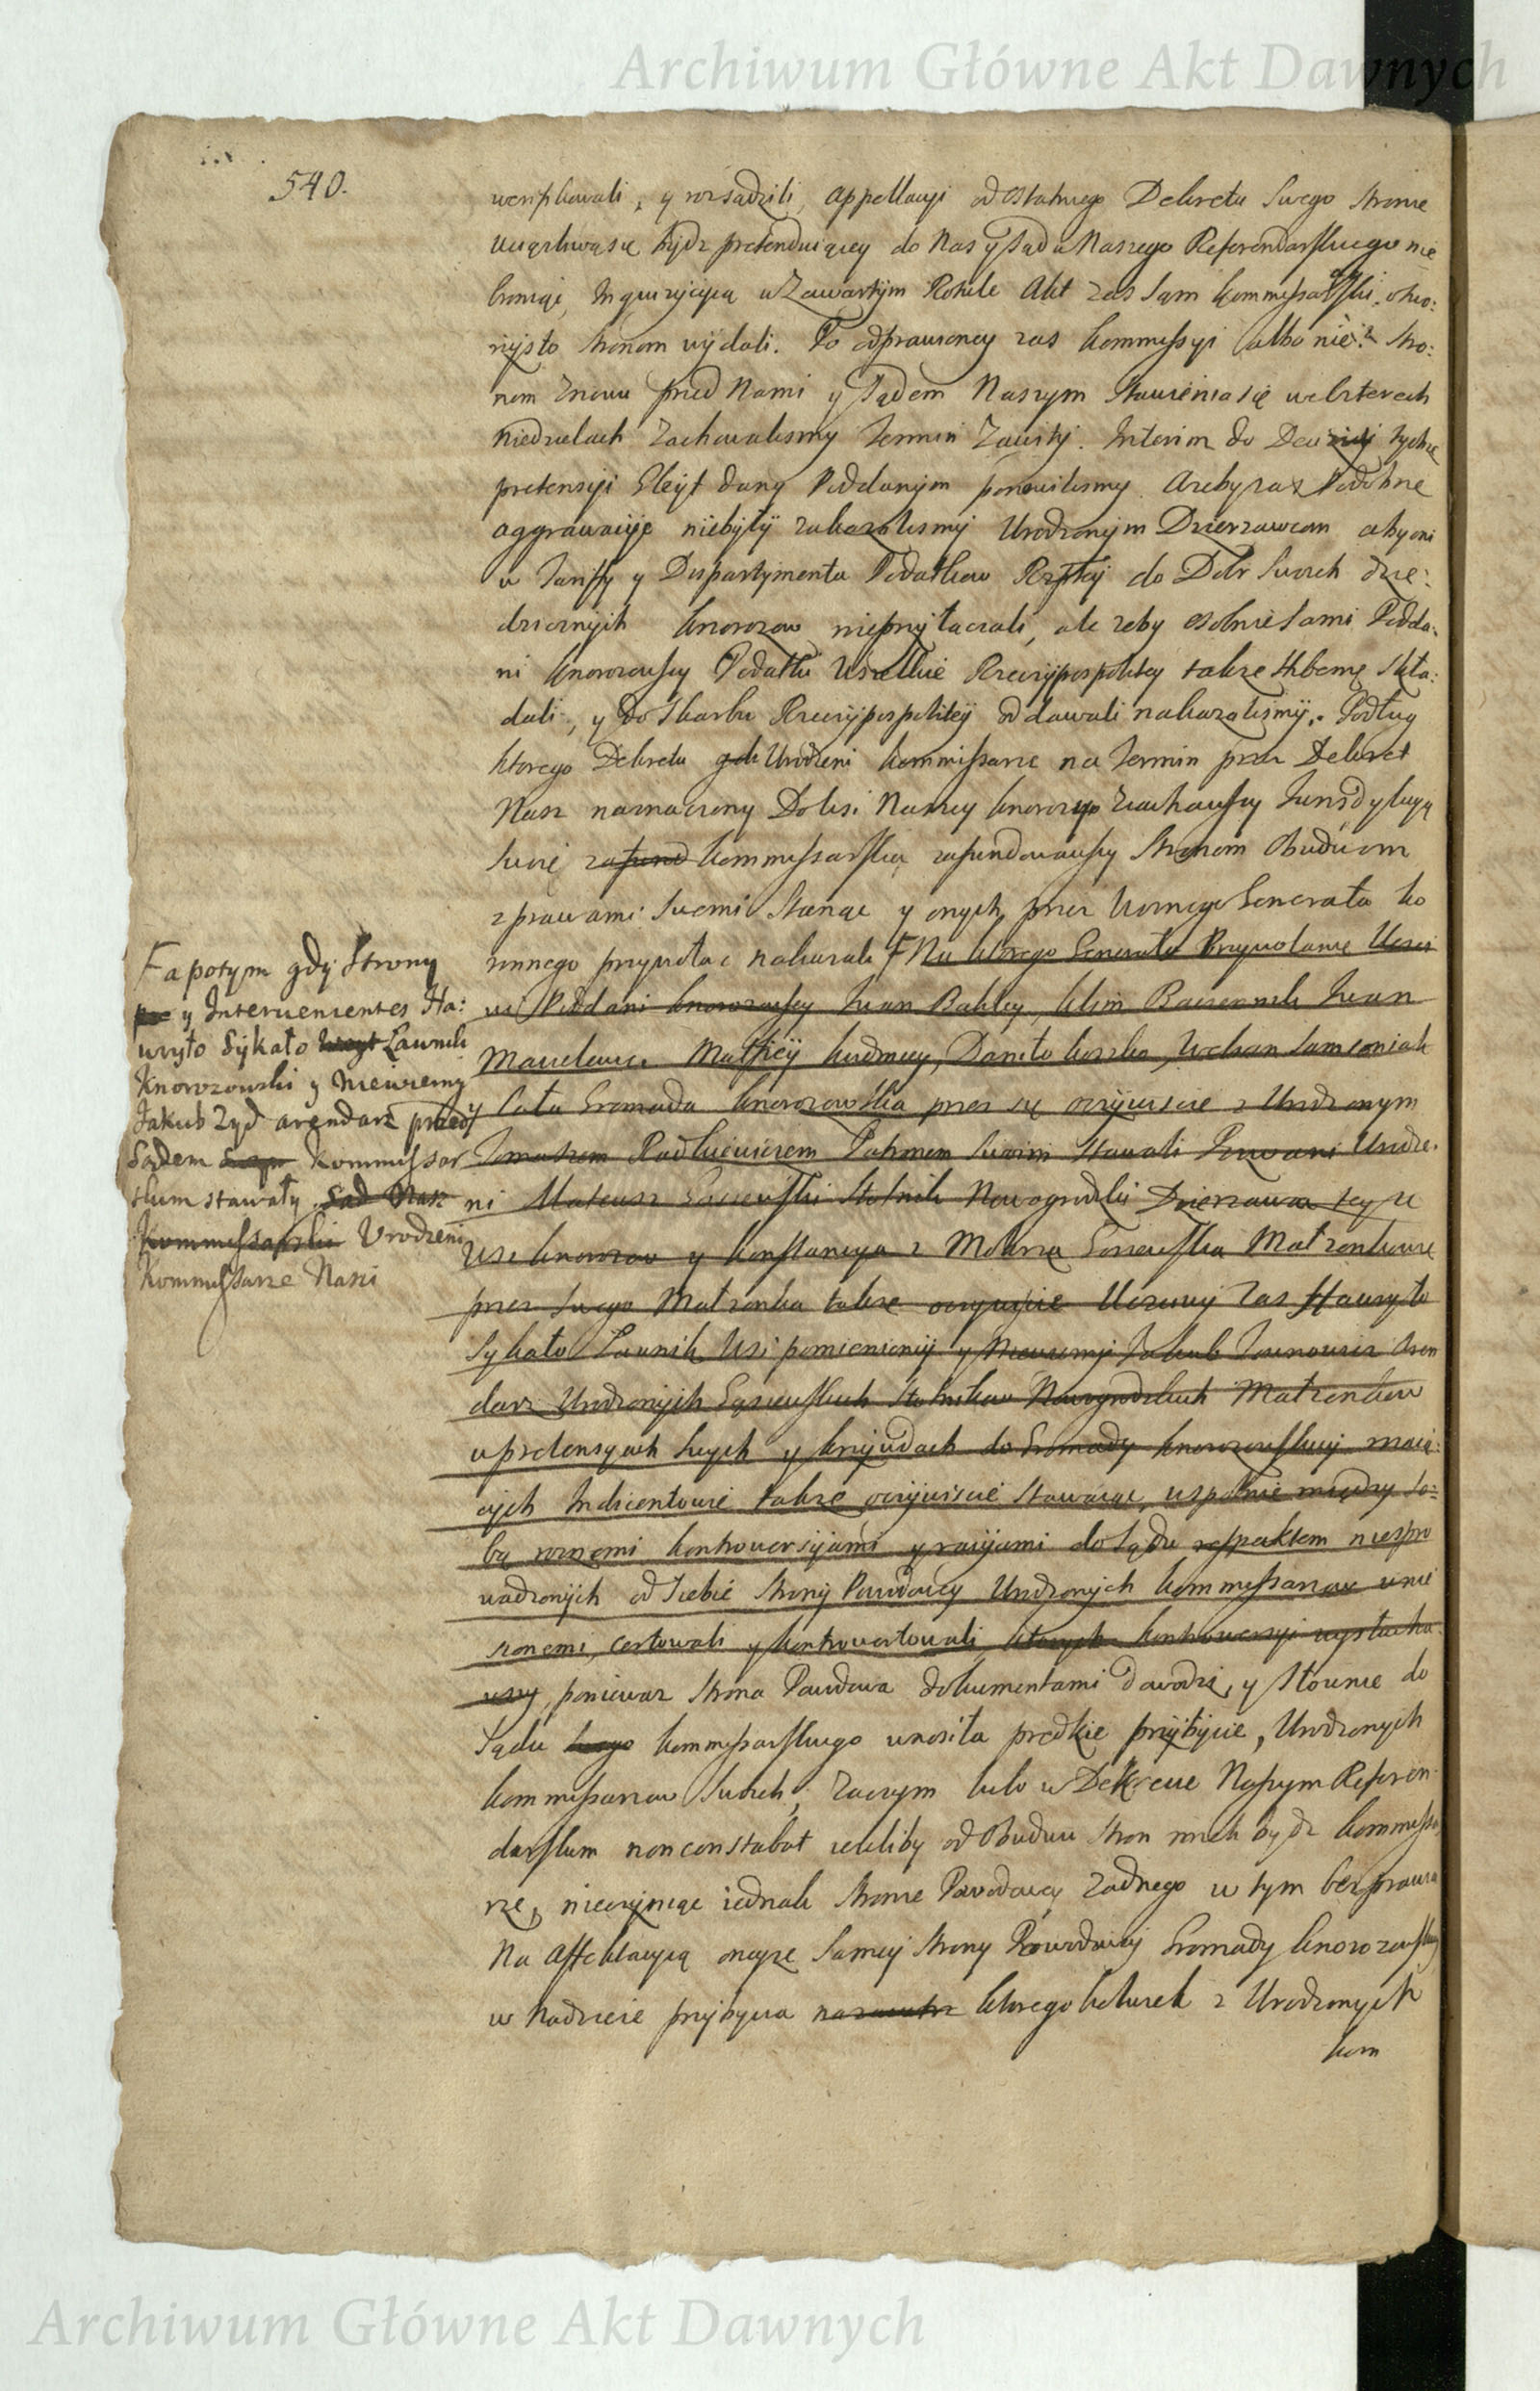 Archiwum Główne Akt Dawnych
540.
weryfikowali, y rozsądzili, appellacyi od ostatniego Dekretu Swego stronie
uciązliwą się bydz pretenduiącey do Nas y Sądu Naszego Referendarskiego nie
broniąc, Inquizycyią w Zawartym Rotule Akt zas Sam Kommissarski, otwo:
rzysto stronom wydali. Po odprawioney zas Kommissyi albo nie: Stro:
nom znowu przed Nami y Sądem Naszym Stawienia się w czterech
Niedzielach Zachowalismy Termin Zawity. Interim do Decyzij tychze
pretensyi Gleyt dany Poddanym ponowilismy. Azeby zas Podobne
aggrawacye niebyły zakazalismy Urodzonym Dzierzawcom aby oni
w Taryffy y Dyspartymenta Podatkow Rzptey do Dobr Swoich dzie:
dzicznych Knorozow nieprzyłaczali, ale zeby osobnie Sami Podda:
ni Knorozowscy Podatki Wszelkie Rzeczypospolitey takze Hybernę Skła:
dali, y do Skarbu Rzeczypospolitey oddawali nakazalismy. Podług
ktorego Dekretu gdi Urodzeni Kommissarze na Termin przez Dekret
Nasz naznaczony Do Wsi Naszey Knorozow Ziachawszy Jurisdykcyą
Swoię zafund Kommissarską zafundowawszy Stronom Obudwom
z prawami Swemi Stanąc y onych przez Woznego Generała Ko
ronnego przywołac nakazali F Na ktorego Generała Przywołanie Uczci
wi Poddani Knorozowscy Iwan Babicy, Klim Iwan
Matfiey Daniło Koszka, Samconiak
y Cała Gromada Knorozowska przez się oczywiscie z Urodzonym
Tomaszem Patronem Swoim Stawali Pozwani Urodze:
ni Mateusz Gosiewski Stolnik Nowogrodzki Dzierzawca teyze
Wsi Knorozow y Konstancya z Gosiewska Małzonkowie
przez Swego Małzonka takze oczywiscie Uczciwy Zas Hawryło
Sykało Ławnik Wsi pomienioney y Niewierny Jakub Aren
darz Urodzonych Gosiewskich Stolnikow Nowogrodzkich Małzonkow
w pretensyach Swych y krzywdach do Gromady Knorozowskiey maią:
cych Indicentowie takze oczywiscie Stawaiąc, wspolnie między So:
bą roznemi kontrowersyiami y racyiami do Sądu respektem niespro
wadzonych od Siebie Strony Powodowey Urodzonych Kommissarzow wnie
sionemi, certowali y kontrowertowali, ktorych kontrowersyi wysłucha
wszy, poniewaz Strona Powodowa dokumentami dowodzi, y Słownie do
Sądu Kommissarskiego wnosiła prędkie przybycie, Urodzonych
Kommissarzow Swoich, Zaczym lubo w Dekrecie Naszym Referen
darskim non constabat ieśliby od Obudwu Stron mieli bydz Kommissa
rze, nieczyniąc iednak Stronie Powodowey Zadnego w tym bezprawia
Na affektacyią oneyze Samey Strony Powodowey Gromady Knorozowskiey
w Nadzieie przybycia ktoregokolwiek z Urodzonych
Kom
F a potym gdy Strony
pro y Intervenientes Ha:
wryło Sykało Woyt Ławnik
Knorozowski y Niewierny
Jakub Zyd arendarz przed
Sądem Kommissar
skim stawały, Sąd Nasz
Kommissarski Vrodzeni
Kommissarze Nasi
Archiwum Główne Akt Dawnych